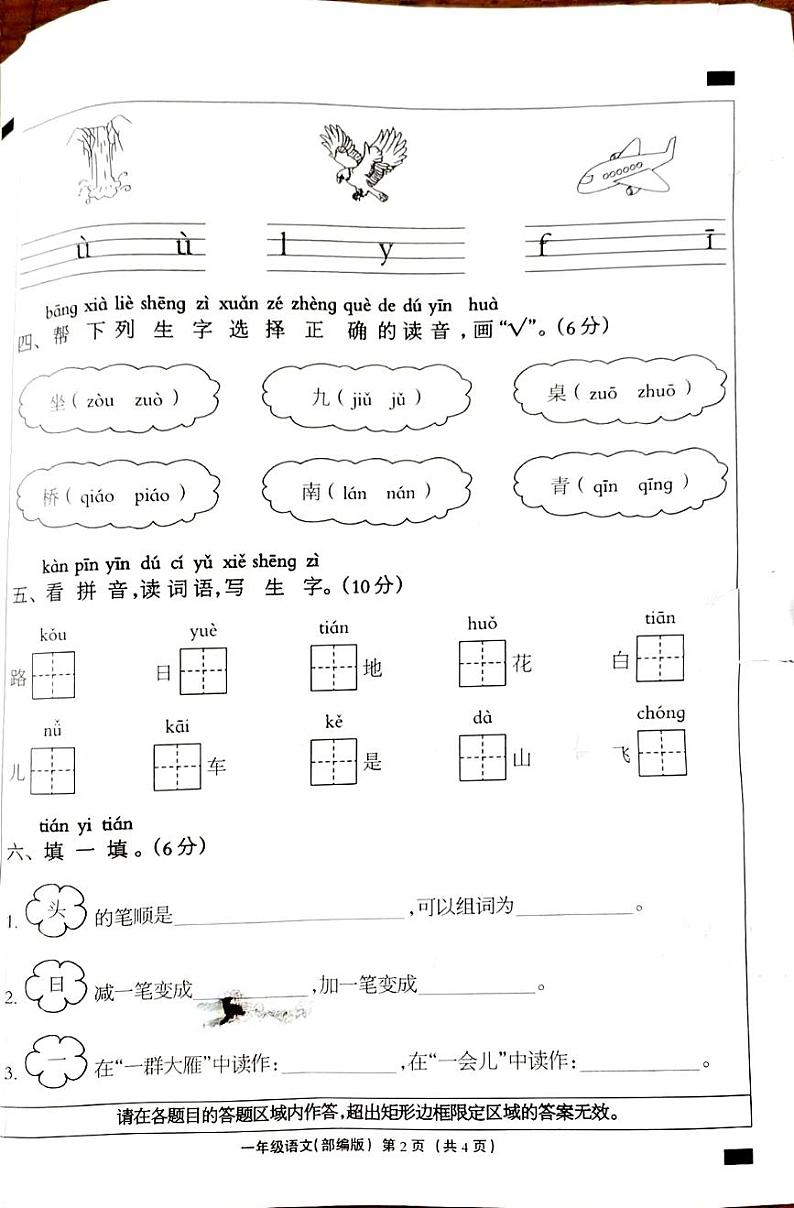 ù ù l y f ī
bāng xià liè shēng zì xuǎn zé zhèng què de dú yīn huà
四、帮下列生字选择正确的读音,画“√”。(6分)
坐( zòu zuò ) 九( jiǔ jǔ ) 桌( zuō zhuō )
桥( qiáo piáo ) 南( lán nán ) 青( qīn qīng )
kàn pīn yīn dú cí yǔ xiě shēng zì
五、看拼音,读词语,写生字。(10分)
kǒu yuè tián huǒ tiān
路 日 地 花 白
nǚ kāi kě dà chóng
儿 车 是 山 飞
tián yi tián
六、填一填。(6分)
1. 头 的笔顺是____________________,可以组词为__________。
2. 日 减一笔变成__________,加一笔变成__________。
3. 一 在“一群大雁”中读作:__________,在“一会儿”中读作:__________。
请在各题目的答题区域内作答,超出矩形边框限定区域的答案无效。
一年级语文(部编版) 第2页 (共4页)